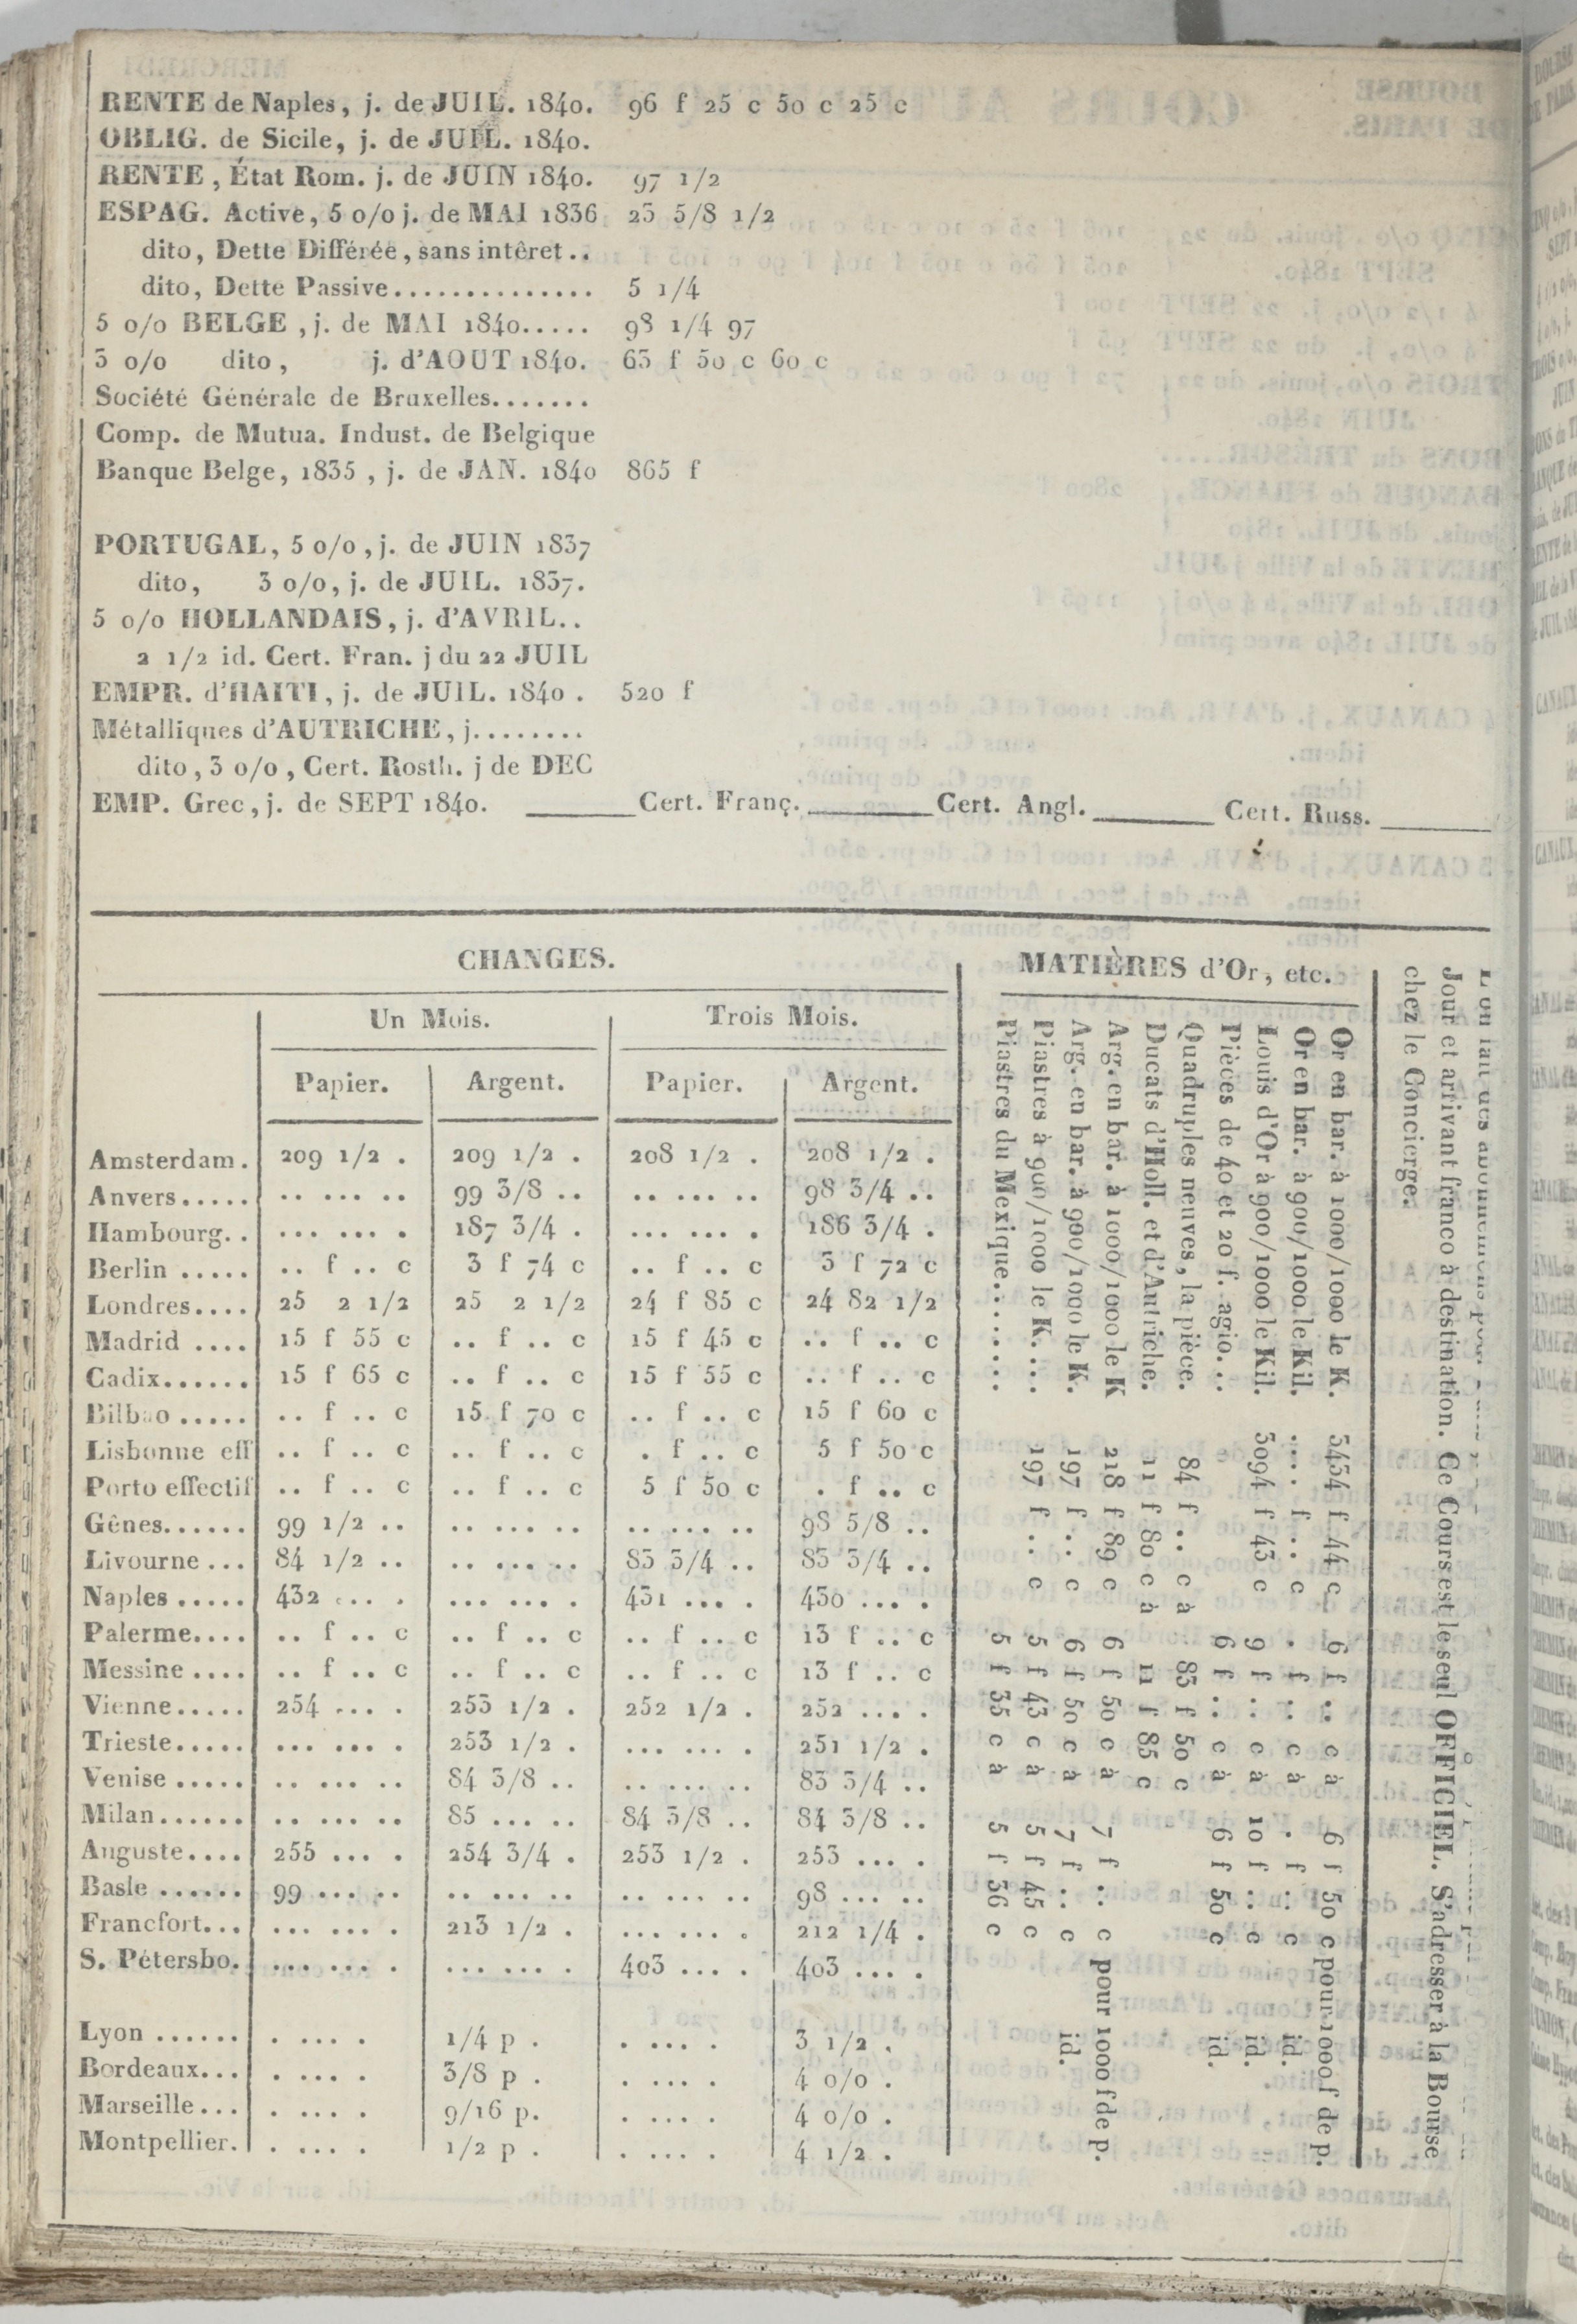 RENTE de Naples, j. de JUIL. 1840. 96 f 25 c 50 c 25 c
OBLIG. de Sicile, j. de JUIL. 1840.
RENTE, État Rom. j. de JUIN 1840. 97 1/2
ESPAG. Active, 5 0/0 j. de MAI 1836 23 5/8 1/2
dito, Dette Différée, sans intêret..
dito, Dette Passive.............. 5 1/4
5 0/0 BELGE, j. de MAI 1840..... 98 1/4 97
3 0/0 dito, j. d'AOUT 1840. 63 f 50 c 60 c
Société Générale de Bruxelles.......
Comp. de Mutua. Indust. de Belgique
Banque Belge, 1835, j. de JAN. 1840 865 f
PORTUGAL, 5 0/0, j. de JUIN 1837
dito, 3 0/0, j. de JUIL. 1837.
5 0/0 HOLLANDAIS, j. d'AVRIL..
2 1/2 id. Cert. Fran. j du 22 JUIL
EMPR. d'HAITI, j. de JUIL. 1840. 520 f
Métalliques d'AUTRICHE, j........
dito, 3 0/0, Cert. Rosth. j de DEC
EMP. Grec, j. de SEPT 1840. ______Cert. Franç.______Cert. Angl.______Cert. Russ.______
CHANGES.
Un Mois. Trois Mois.
Papier. Argent. Papier. Argent.
Amsterdam. 209 1/2 . 209 1/2 . 208 1/2 . 208 1/2 .
Anvers..... .. ... .. 99 3/8 .. .. ... .. 98 3/4 ..
Hambourg.. ... ... . 187 3/4 . ... ... . 186 3/4 .
Berlin ..... .. f .. c 3 f 74 c .. f .. c 3 f 72 c
Londres.... 25 2 1/2 25 2 1/2 24 f 85 c 24 82 1/2
Madrid .... 15 f 55 c .. f .. c 15 f 45 c .. f .. c
Cadix...... 15 f 65 c .. f .. c 15 f 55 c .. f .. c
Bilbao ..... .. f .. c 15 f 70 c .. f .. c 15 f 60 c
Lisbonne eff .. f .. c .. f .. c . f .. c 5 f 50 c
Porto effectif .. f .. c .. f .. c 5 f 50 c . f .. c
Gênes...... 99 1/2 .. .. ... .. .. ... .. 98 5/8 ..
Livourne ... 84 1/2 .. .. ... .. 83 3/4 .. 83 3/4 ..
Naples ..... 432 ... . ... ... . 431 ... . 430 ... .
Palerme.... .. f .. c .. f .. c .. f .. c 13 f .. c
Messine .... .. f .. c .. f .. c .. f .. c 13 f .. c
Vienne..... 254 ... . 253 1/2 . 252 1/2 . 252 ... .
Trieste..... ... ... . 253 1/2 . ... ... . 251 1/2 .
Venise ..... .. ... .. 84 3/8 .. .. ... .. 83 3/4 ..
Milan...... .. ... .. 85 ... .. 84 3/8 .. 84 3/8 ..
Auguste.... 255 ... . 254 3/4 . 253 1/2 . 253 ... .
Basle ...... 99 ... .. .. ... .. .. ... .. 98 ... ..
Francfort... ... ... . 213 1/2 . ... ... . 212 1/4 .
S. Pétersbo. ... ... . ... ... . 403 ... . 403 ... .
Lyon ...... . ... . 1/4 p . . ... . 3 1/2 .
Bordeaux... . ... . 3/8 p . . ... . 4 0/0 .
Marseille... . ... . 9/16 p. . ... . 4 0/0 .
Montpellier. . ... . 1/2 p . . ... . 4 1/2 .
MATIÈRES d'Or, etc.
Or en bar. à 1000/1000 le K. 3434 f 44 c 6 f .. c à 6 f 50 c pour 1000 f de p.
Or en bar. à 900/1000 le Kil. .... f .. c . f .. c à . f .. c id.
Louis d'Or à 900/1000 le Kil. 3094 f 43 c 9 f .. c à 10 f .. c id.
Pièces de 40 et 20 f. agio... 6 f .. c à 6 f 50 c id.
Quadruples neuves, la pièce. 84 f .. c à 83 f 50 c
Ducats d'Holl. et d'Autriche. 11 f 80 c à 11 f 85 c
Arg. en bar. à 1000/1000 le K 218 f 89 c 6 f 50 c à 7 f .. c pour 1000 f de p.
Arg. en bar. à 900/1000 le K. 197 f .. c 6 f 50 c à 7 f .. c id.
Piastres à 900/1000 le K.... 197 f .. c 5 f 43 c à 5 f 45 c
Piastres du Mexique....... 5 f 35 c à 5 f 36 c
L'on fait des abonnemens pour
Jour et arrivant franco à destination. Ce Cours est le seul OFFICIEL. S'adresser à la Bourse
chez le Concierge.